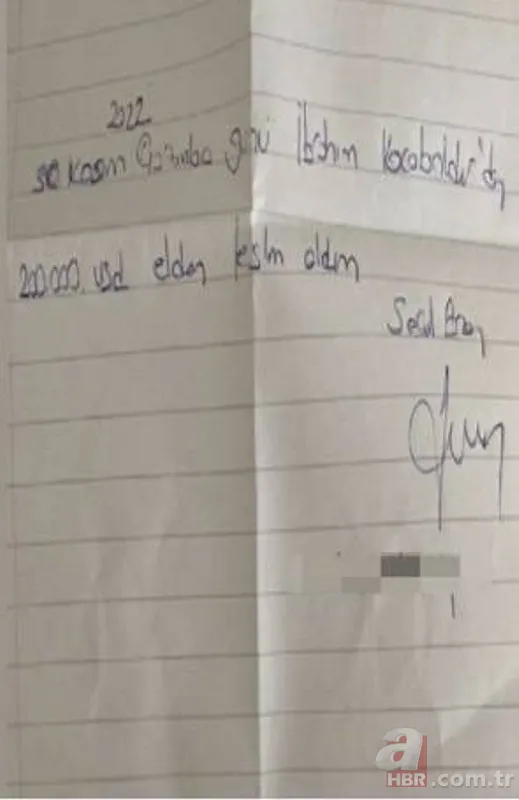 2022
30 Kasım Çarşamba günü İbrahim Kocabaldır'dan
200.000. usd elden teslim aldım
Seçil Erzan
a
HBR.com.tr